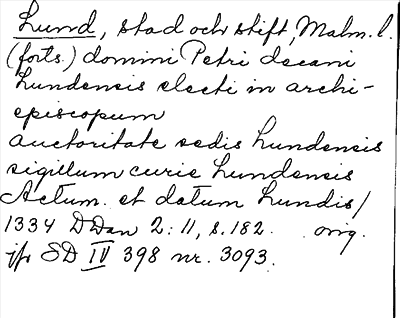 Lund, stad och stift, Malm. l.
(forts.) domini Petri decani
Lundensis electi in archi-
episcopum
auctoritate sedis Lundensis
sigillum curie Lundensis
Actum et datum Lundis/
1334 DDan 2:11, s. 182. orig.
jfr SD IV 398 nr. 3093.